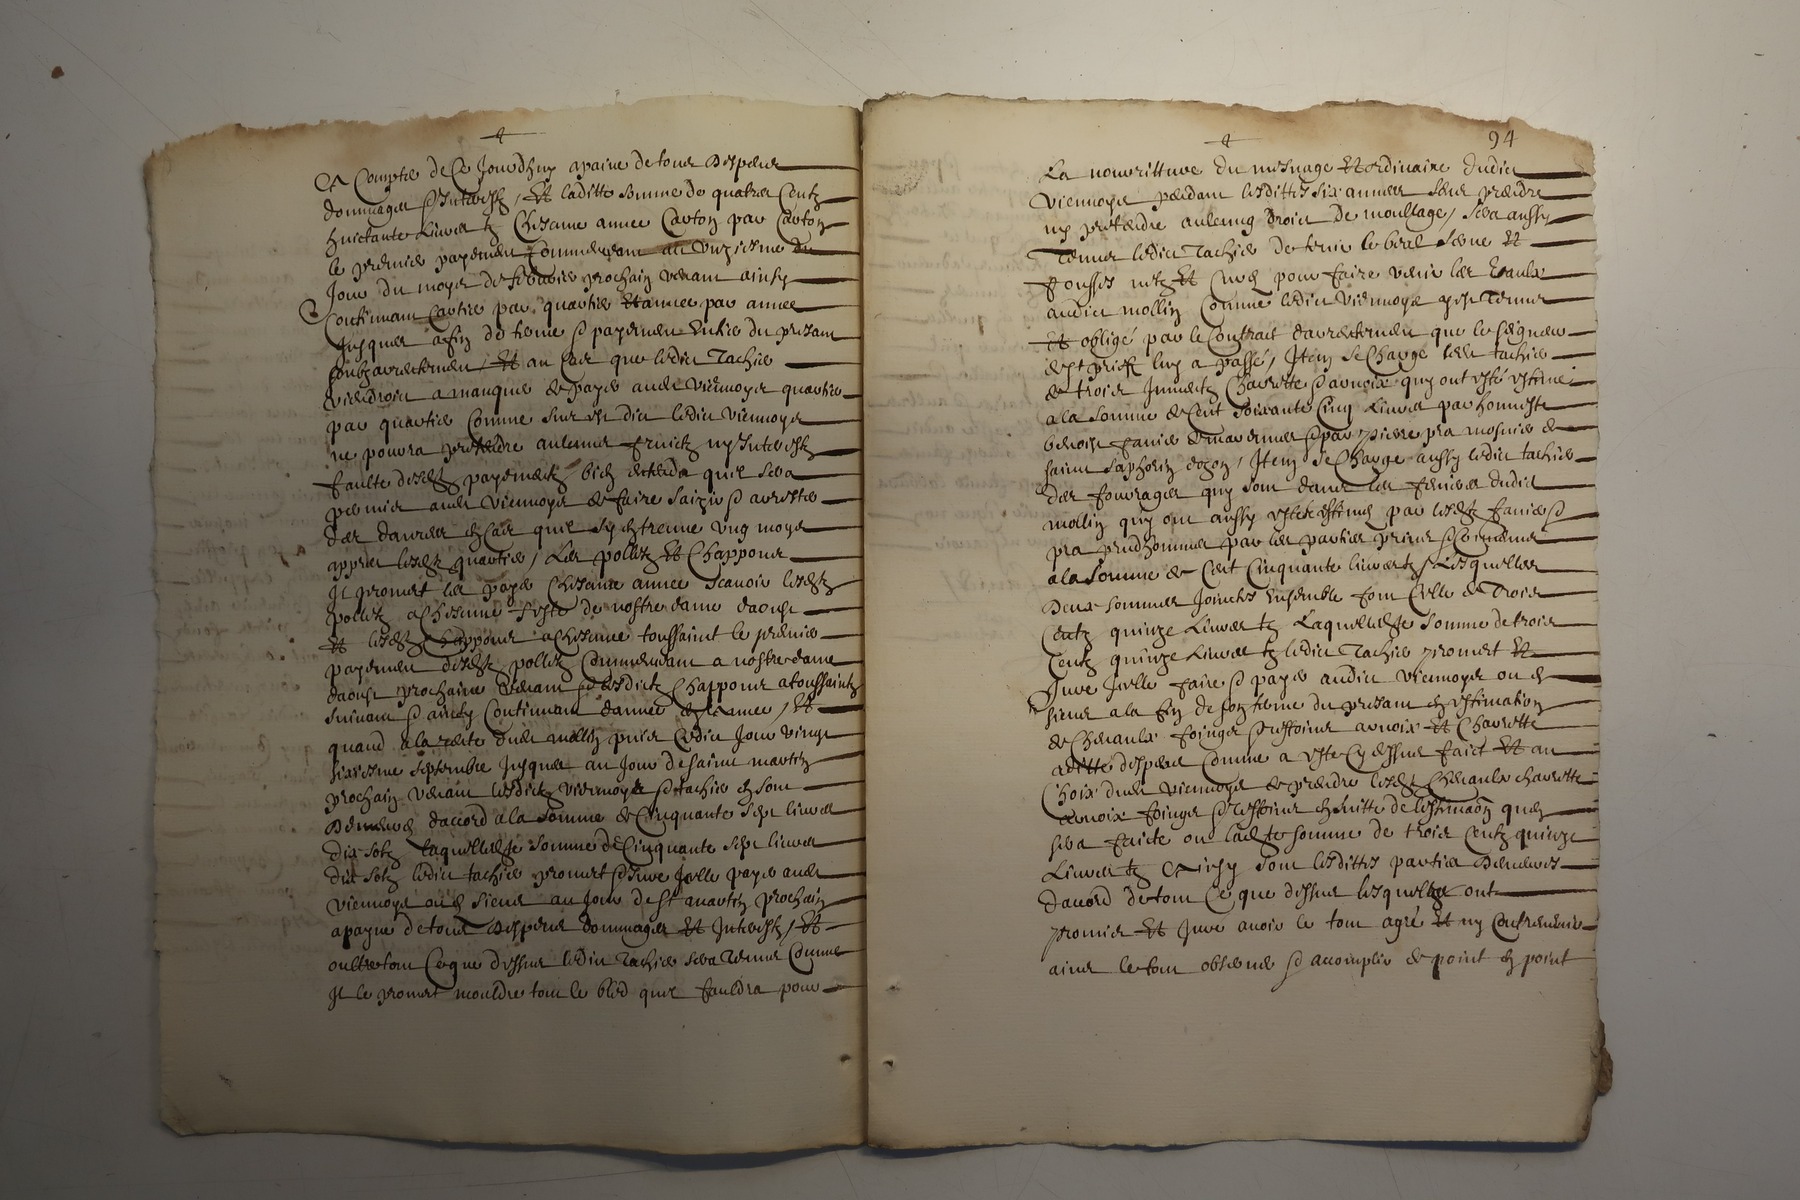 A Compter de Ce Jourdhuy apaine de tous despens
dommages & Interestz, Et laditte somme de quatres Centz
huictante Livres tz Chescune annee Carton par Carton
le premier payement Commencant au unziesme du
Jour du moys de febvrier prochain venant ainsy
Continuant Cartier par quartier Et annee par annee
Jusques a fin de terme & payement Entier du present
soubzarrentement, Et au Cas que ledict Tachier
viendroict a manquer de payer audict Viennoys quartier
par quartier Comme sus est dict ledict Viennoys
ne pourra pretendre aulcunes fruictz ny Interestz
faulte desdictz payementz bien entendu quil sera
permis audict Viennoys de faire saizir & arrester
des danrees en Cas quil sy entrenne ung moys
appres lesdictz quartier, Les polletz Et Chappons
Il promet les payer Chescune annee scavoir lesdictz
polletz a Chescune feste de nostre dame daoust
Et lesdictz Chappons a Chescune toussaint le premier
payement desdictz polletz Commencant a nostre dame
daoust prochaine venant & lesdictz Chappons a toussainctz
suivant & ainsy Continuant dannee en annee, Et
quand a la rente dudict mollin puis Cedict Jour vingt
sixiesme septembre Jusques au Jour de sainct martin
prochain venant lesdictz viennoys & tachier en sont
demeures daccord a la somme de Cinquante sept livres
dix solz laquelle somme de Cinquante sept livres
dix solz ledict tachier promet & Jure Icelle payer audict
viennoys ou es siens au Jour de St martin prochain
a payne de tous despens dommages Et Interestz, Et
oultre tout Ce que dessus ledict Tachier sera tenu Comme
Il le promet mouldre tout le bled quil fauldra pour
94
La nourritture du mesnage Et ordinaire dudict
Viennoys pendant lesdittes six annees sans prendre
ny pretendre aulcung droict de moultage, sera aussy
Tenus ledict Tachier de tenir le berel serve Et
fousses netz Et Cures pour faire venir les Eaulx
audict mollin Comme ledict Viennoys y est Tenus
Et obligé par le Contrait darrentement que le seigneur
luy a passé, Item se Charge ledict tachier
de troies Jumentz Charrette & arnoix quy ont esté estimé
a la somme de Cent soixante Cinq Livres par honneste
benoist favier & par pierre pra mosnier de
sainct saphorin dozon, Item se Charge aussy ledict tachier
des fourrages quy sont dans les fenieres dudict
mollin quy ont aussy estes estimes par lesdictz favier &
pra prudhommes par les parties prins &
a la somme de Cent Cinquante livres tz, Lesquelles
deux sommes Joinctes Ensemble font Celle de Trois
Centz quinze Livres tz Laquelle somme de trois
Centz quinze Livres tz ledict Tachier promet Et
Jure Icelle faire & payer audict viennoys ou es
siens a la fin de son terme du present en estimation
de Chevaulx foinges & arnoix Et Charrette
a ditte despens Comme a este Cy dessus faict Et au
Choix dudict viennoys de prendre lesdictz Chevaulx charrette
arnoix foinges en suitte de lestimaon quen
sera faicte ou ladicte somme de trois Centz quinze
Livres tz Ainsy sont lesdittes parties demeures
daccord de tout Ce que dessus lesquelles ont
promis Et Jure avoir le tout agre Et ny Contrevenir
ains le tout observer & accomplir de point en point